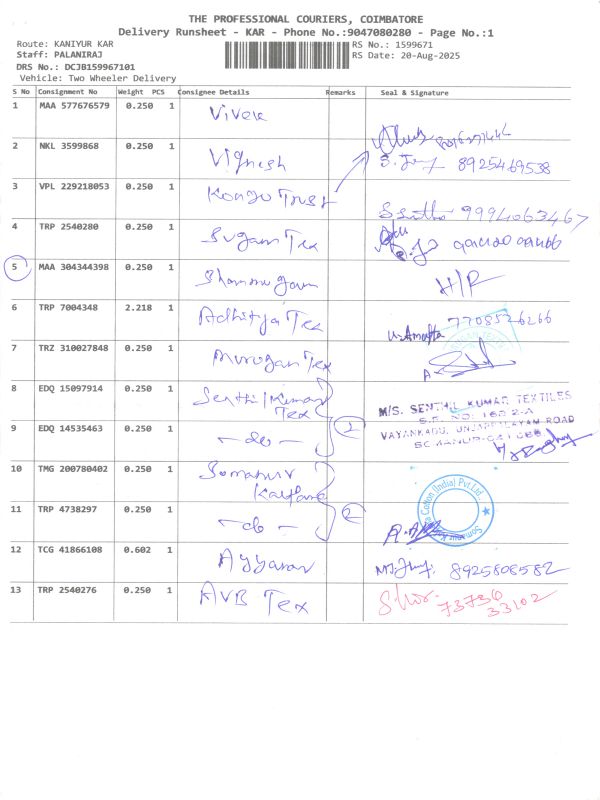 THE PROFESSIONAL COURIERS, COIMBATORE
Delivery Runsheet - KAR - Phone No.:9047080280 - Page No.:1
Route: KANIYUR KAR RS No.: 1599671
Staff: PALANIRAJ RS Date: 20-Aug-2025
DRS No.: DCJB159967101
Vehicle: Two Wheeler Delivery
S No Consignment No Weight PCS Consignee Details Remarks Seal & Signature
1 MAA 577676579 0.250 1 Vivek
2 NKL 3599868 0.250 1 Vignesh 8925469538
3 VPL 229218053 0.250 1 Kongu Trust 9994063467
4 TRP 2540280 0.250 1 Sugam Tex
5 MAA 304344398 0.250 1 H/R
6 TRP 7004348 2.218 1 Adhitya Tex 7708526266
7 TRZ 310027848 0.250 1 Murugan Tex
8 EDQ 15097914 0.250 1 Senthil Kumar Tex
M/S. SENTHIL KUMAR TEXTILES
9 EDQ 14535463 0.250 1 - do - 2
VAYANKADU, UNJAPPALAYAM ROAD
10 TMG 200780402 0.250 1 Somanur
11 TRP 4738297 0.250 1 - do - 2
Cotton (India) Pvt.Ltd.
12 TCG 41866108 0.602 1 Ayyanar 8925808582
13 TRP 2540276 0.250 1 AVB Tex 73736
33102